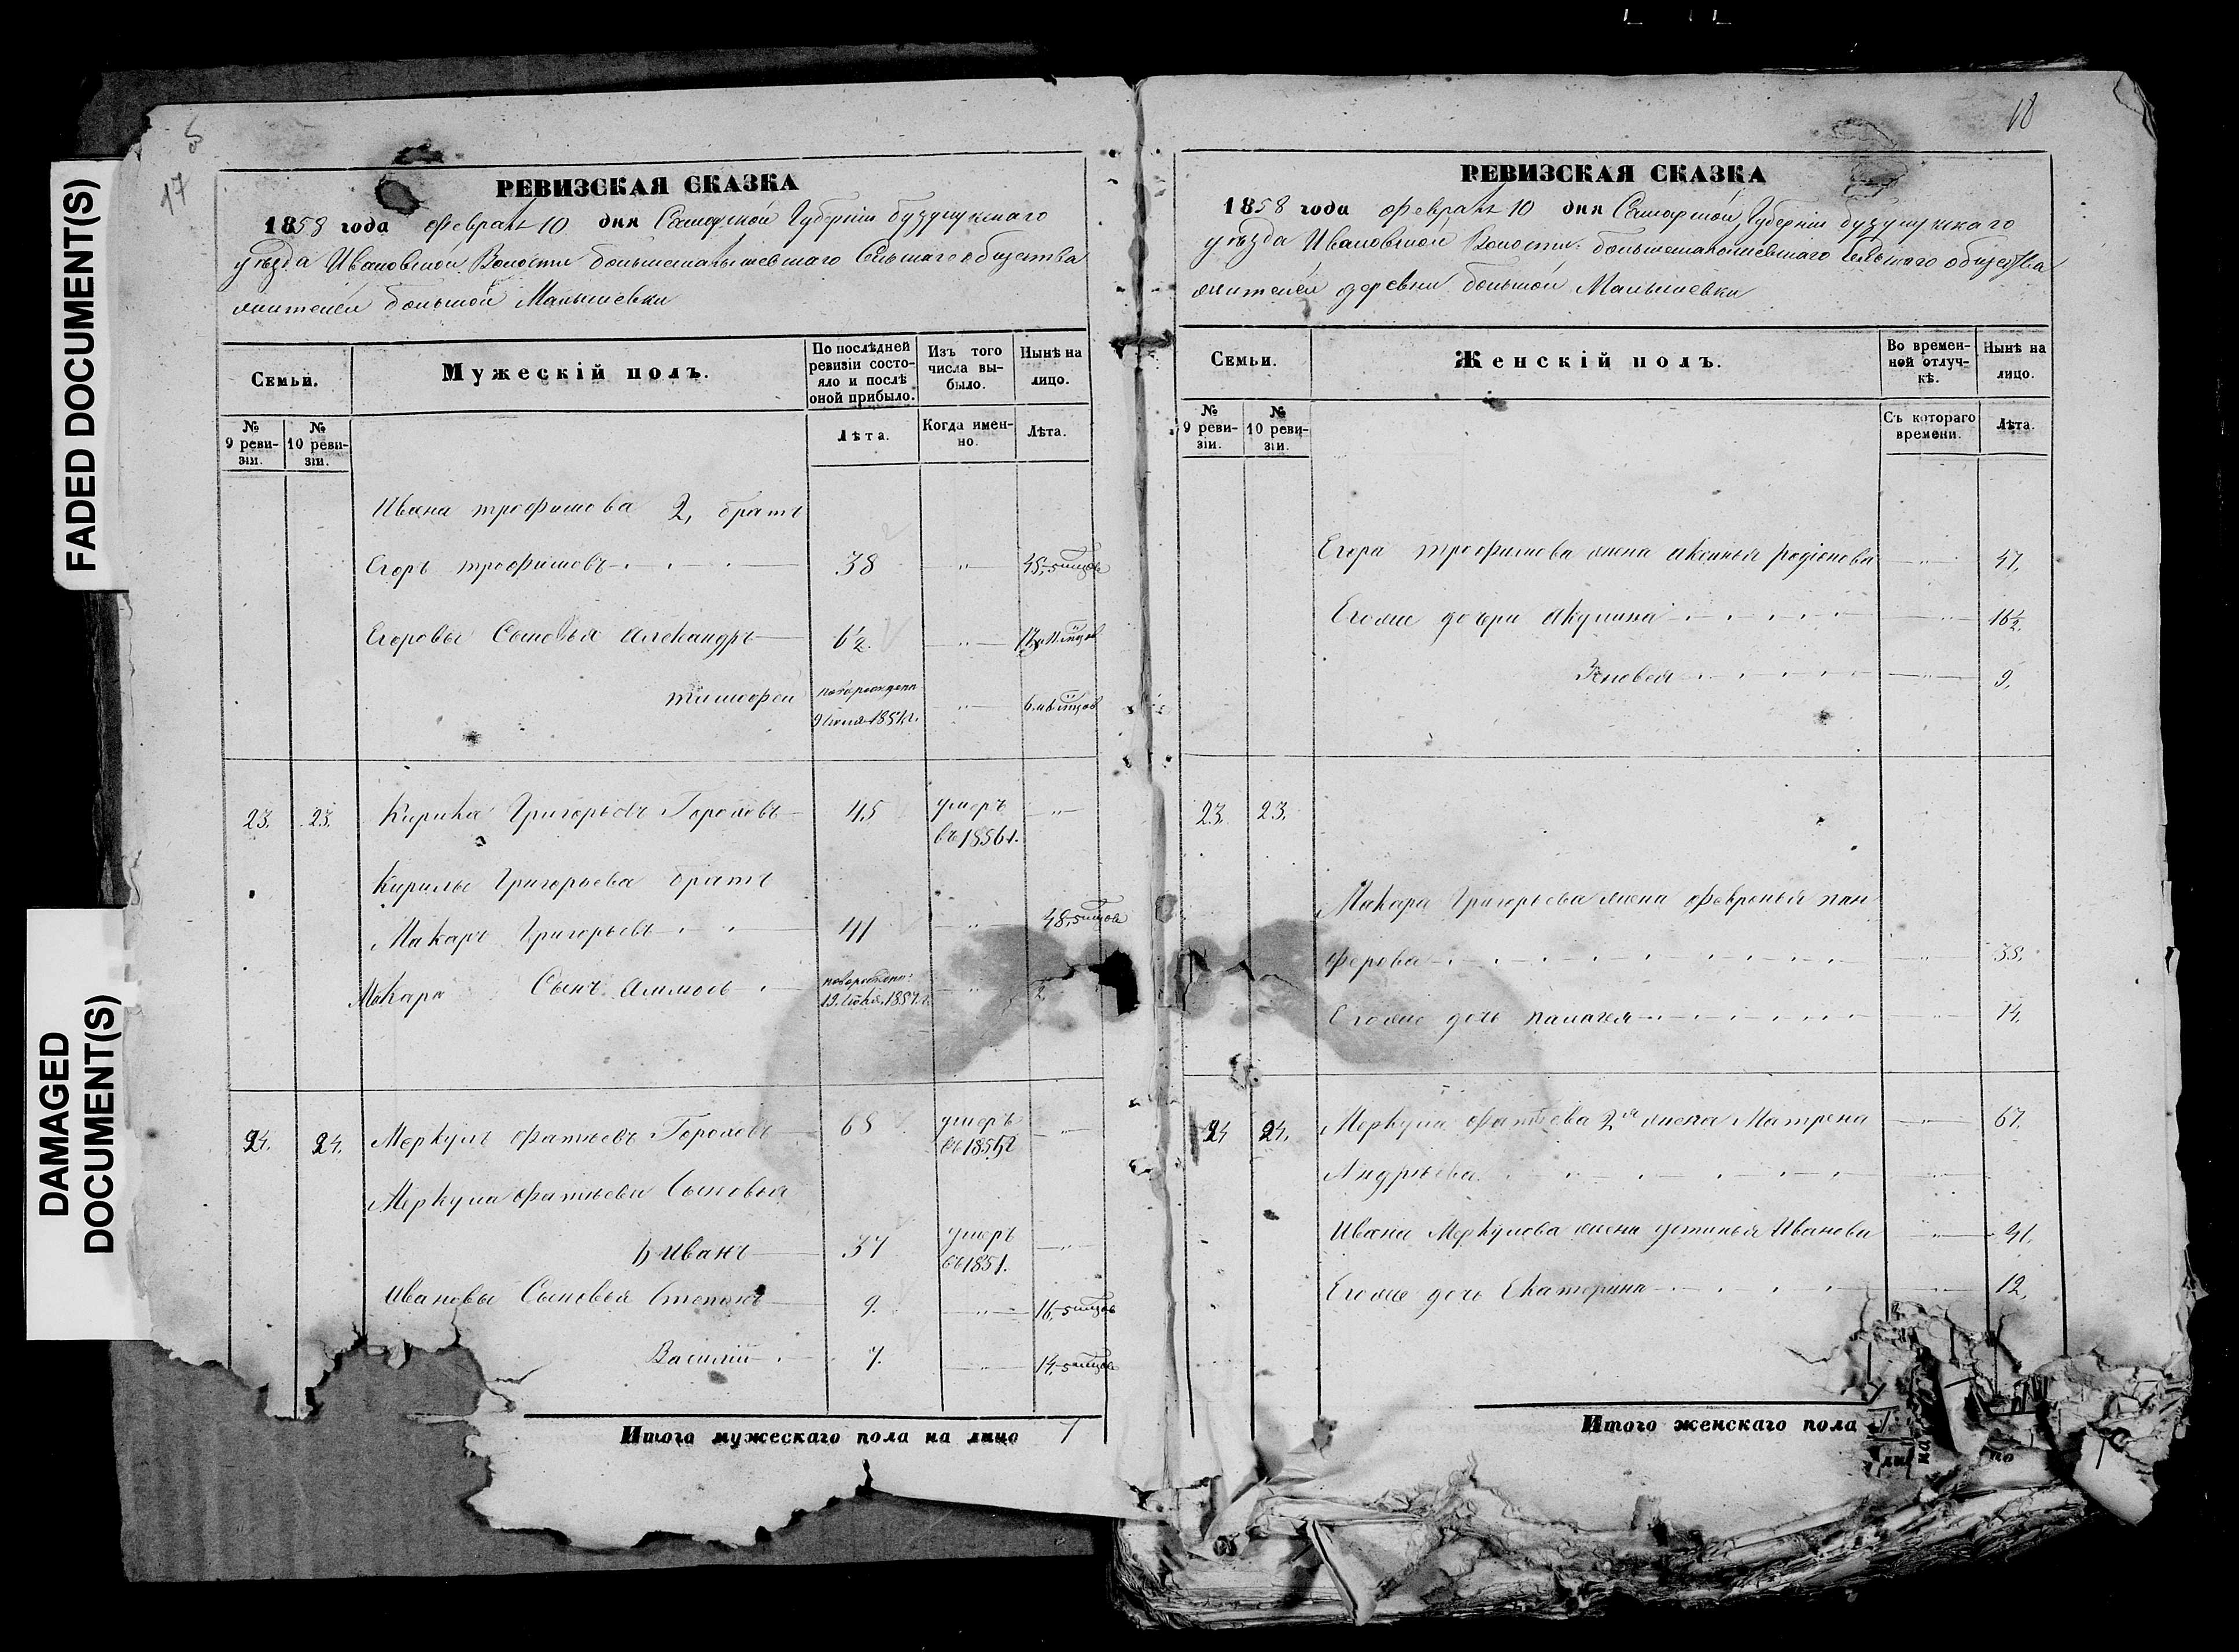 FADED DOCUMENT(S)
DAMAGED
DOCUMENT(S)
17
РЕВИЗСКАЯ СКАЗКА
1858 года февраля 10 дня Самарской Губерніи бузулукскаго
уѣзда Ивановской Волости большемалышевскаго Сельскаго общества
жителей большой Малышевки
Семьи.
Мужескій полъ.
По послѣдней ревизіи состояло и послѣ оной прибыло.
Изъ того числа выбыло.
Нынѣ на лицо.
№ 9 ревизіи.
№ 10 ревизіи.
Лѣта.
Когда именно.
Лѣта.
Ивана трофимова 2, братъ
Егоръ трофимовъ 38 " 45,5 мцов
Егоровы Сыновья александръ 6½ "
тимофей новорожден " 6 мѣсяцов
9 июля 1857 г.
23. 23. Кирила Григорьевъ Гороховъ 45 умеръ "
въ 1856 г.
Кирилы Григорьева братъ
Макаръ Григорьевъ 41 " 48,5 мцов
Макара Сынъ новорожден "
19. 1857 г.
24. 24. Меркулъ фатѣевъ Гороховъ 68 умеръ "
въ 1857
Меркула фатѣева Сыновья
Иванъ 37 умеръ "
въ 1851.
Ивановы Сыновья Степанъ 9. " 16,5 мцов
Василій 7. " 14,5 мцов
Итого мужескаго пола на лицо 7
18
РЕВИЗСКАЯ СКАЗКА
1858 года февраля 10 дня Самарской Губерніи бузулукскаго
уѣзда Ивановской Волости большемалышевскаго Сельскаго общества
жителей деревни большой Малышевки
Семьи.
Женскій полъ.
Во временной отлучкѣ.
Нынѣ на лицо.
№ 9 ревизіи.
№ 10 ревизіи.
Съ котораго времени.
Лѣта.
Егора трофимова жена аксинья родіонова " 47.
Егоже дочри акулина " 16½.
Зеновея " 9.
23. 23.
Макара Григорьева жена февронья пан
ферова " 38.
Егоже дочь палагея " 14.
24 24. Меркула фатѣева 2я жена Матрена " 67.
Андрѣева "
Ивана Меркулова жена устинья Иванова " 41.
Егоже дочь Екатерина " 12.
Итого женскаго пола